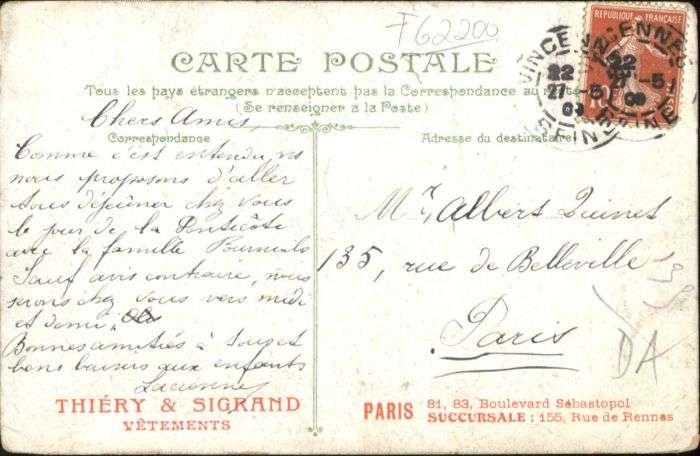 F62200
RÉPUBLIQUE FRANÇAISE
VINCENNES
22
27-5
09
SEINE
CARTE POSTALE
Tous les pays étrangers n'acceptent pas la Correspondance au recto
(Se renseigner à la Poste)
Chers Amis,
Correspondance
Comme c'est entendu, ns
nous proposons d'aller
tous déjeûner chez vous
le jour de la Pentecôte
avec la famille
Sauf avis contraire, nous
serons chez vous vers midi
et demi.
Bonnes amitiés à tous et
bons baisers aux enfants
Adresse du destinataire
Mr, Albert Quinet
135, rue de Belleville
Paris
DA
THIÉRY & SIGRAND
VÊTEMENTS
PARIS 81, 83, Boulevard Sébastopol
SUCCURSALE : 155, Rue de Rennes